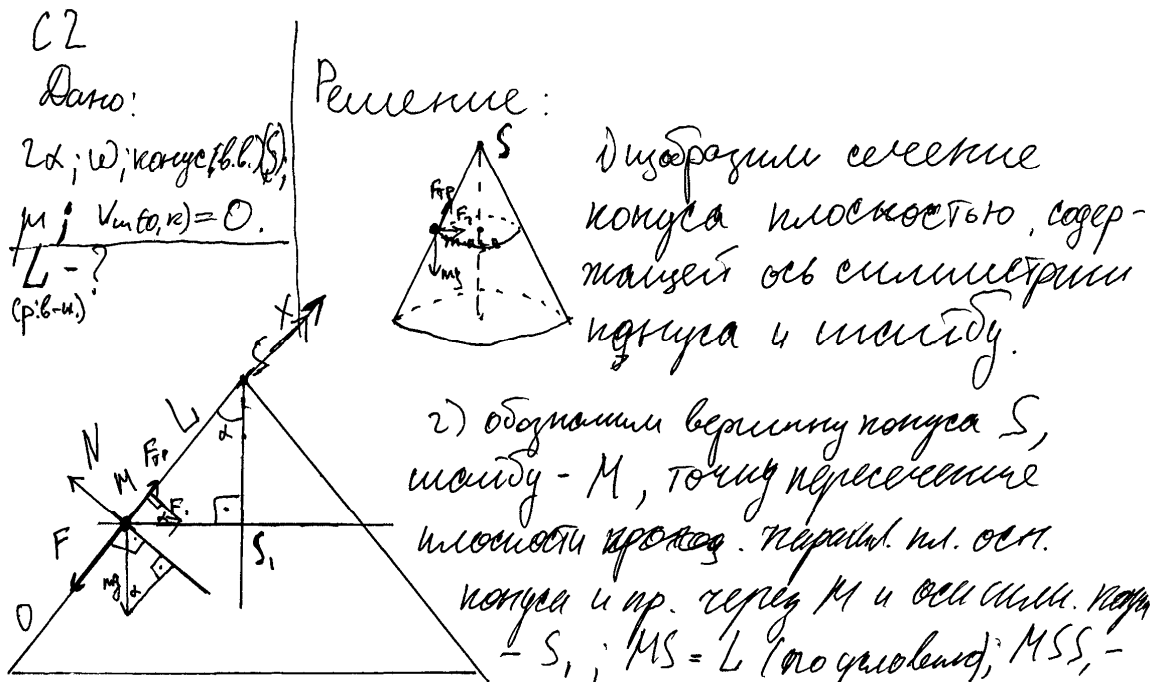 C2
Дано:
2α; ω; конус(в.в.)(S);
μ; Vш(то,к) = 0.
L - ?
(р:в-ш.)
Решение:
S
Fтр
F1
mg
1) изобразим сечение
конуса плоскостью, содер-
жащей ось симметрии
конуса и шайбу.
X
S
L
α
N
M
Fтр
F1
F
mg
α
S1
O
2) обозначим вершину конуса S,
шайбу - M, точку пересечение
плоскости проход. паралл. пл. осн.
конуса и пр. через M и оси симм. кону
- S1; MS = L (по условию); MSS1 -